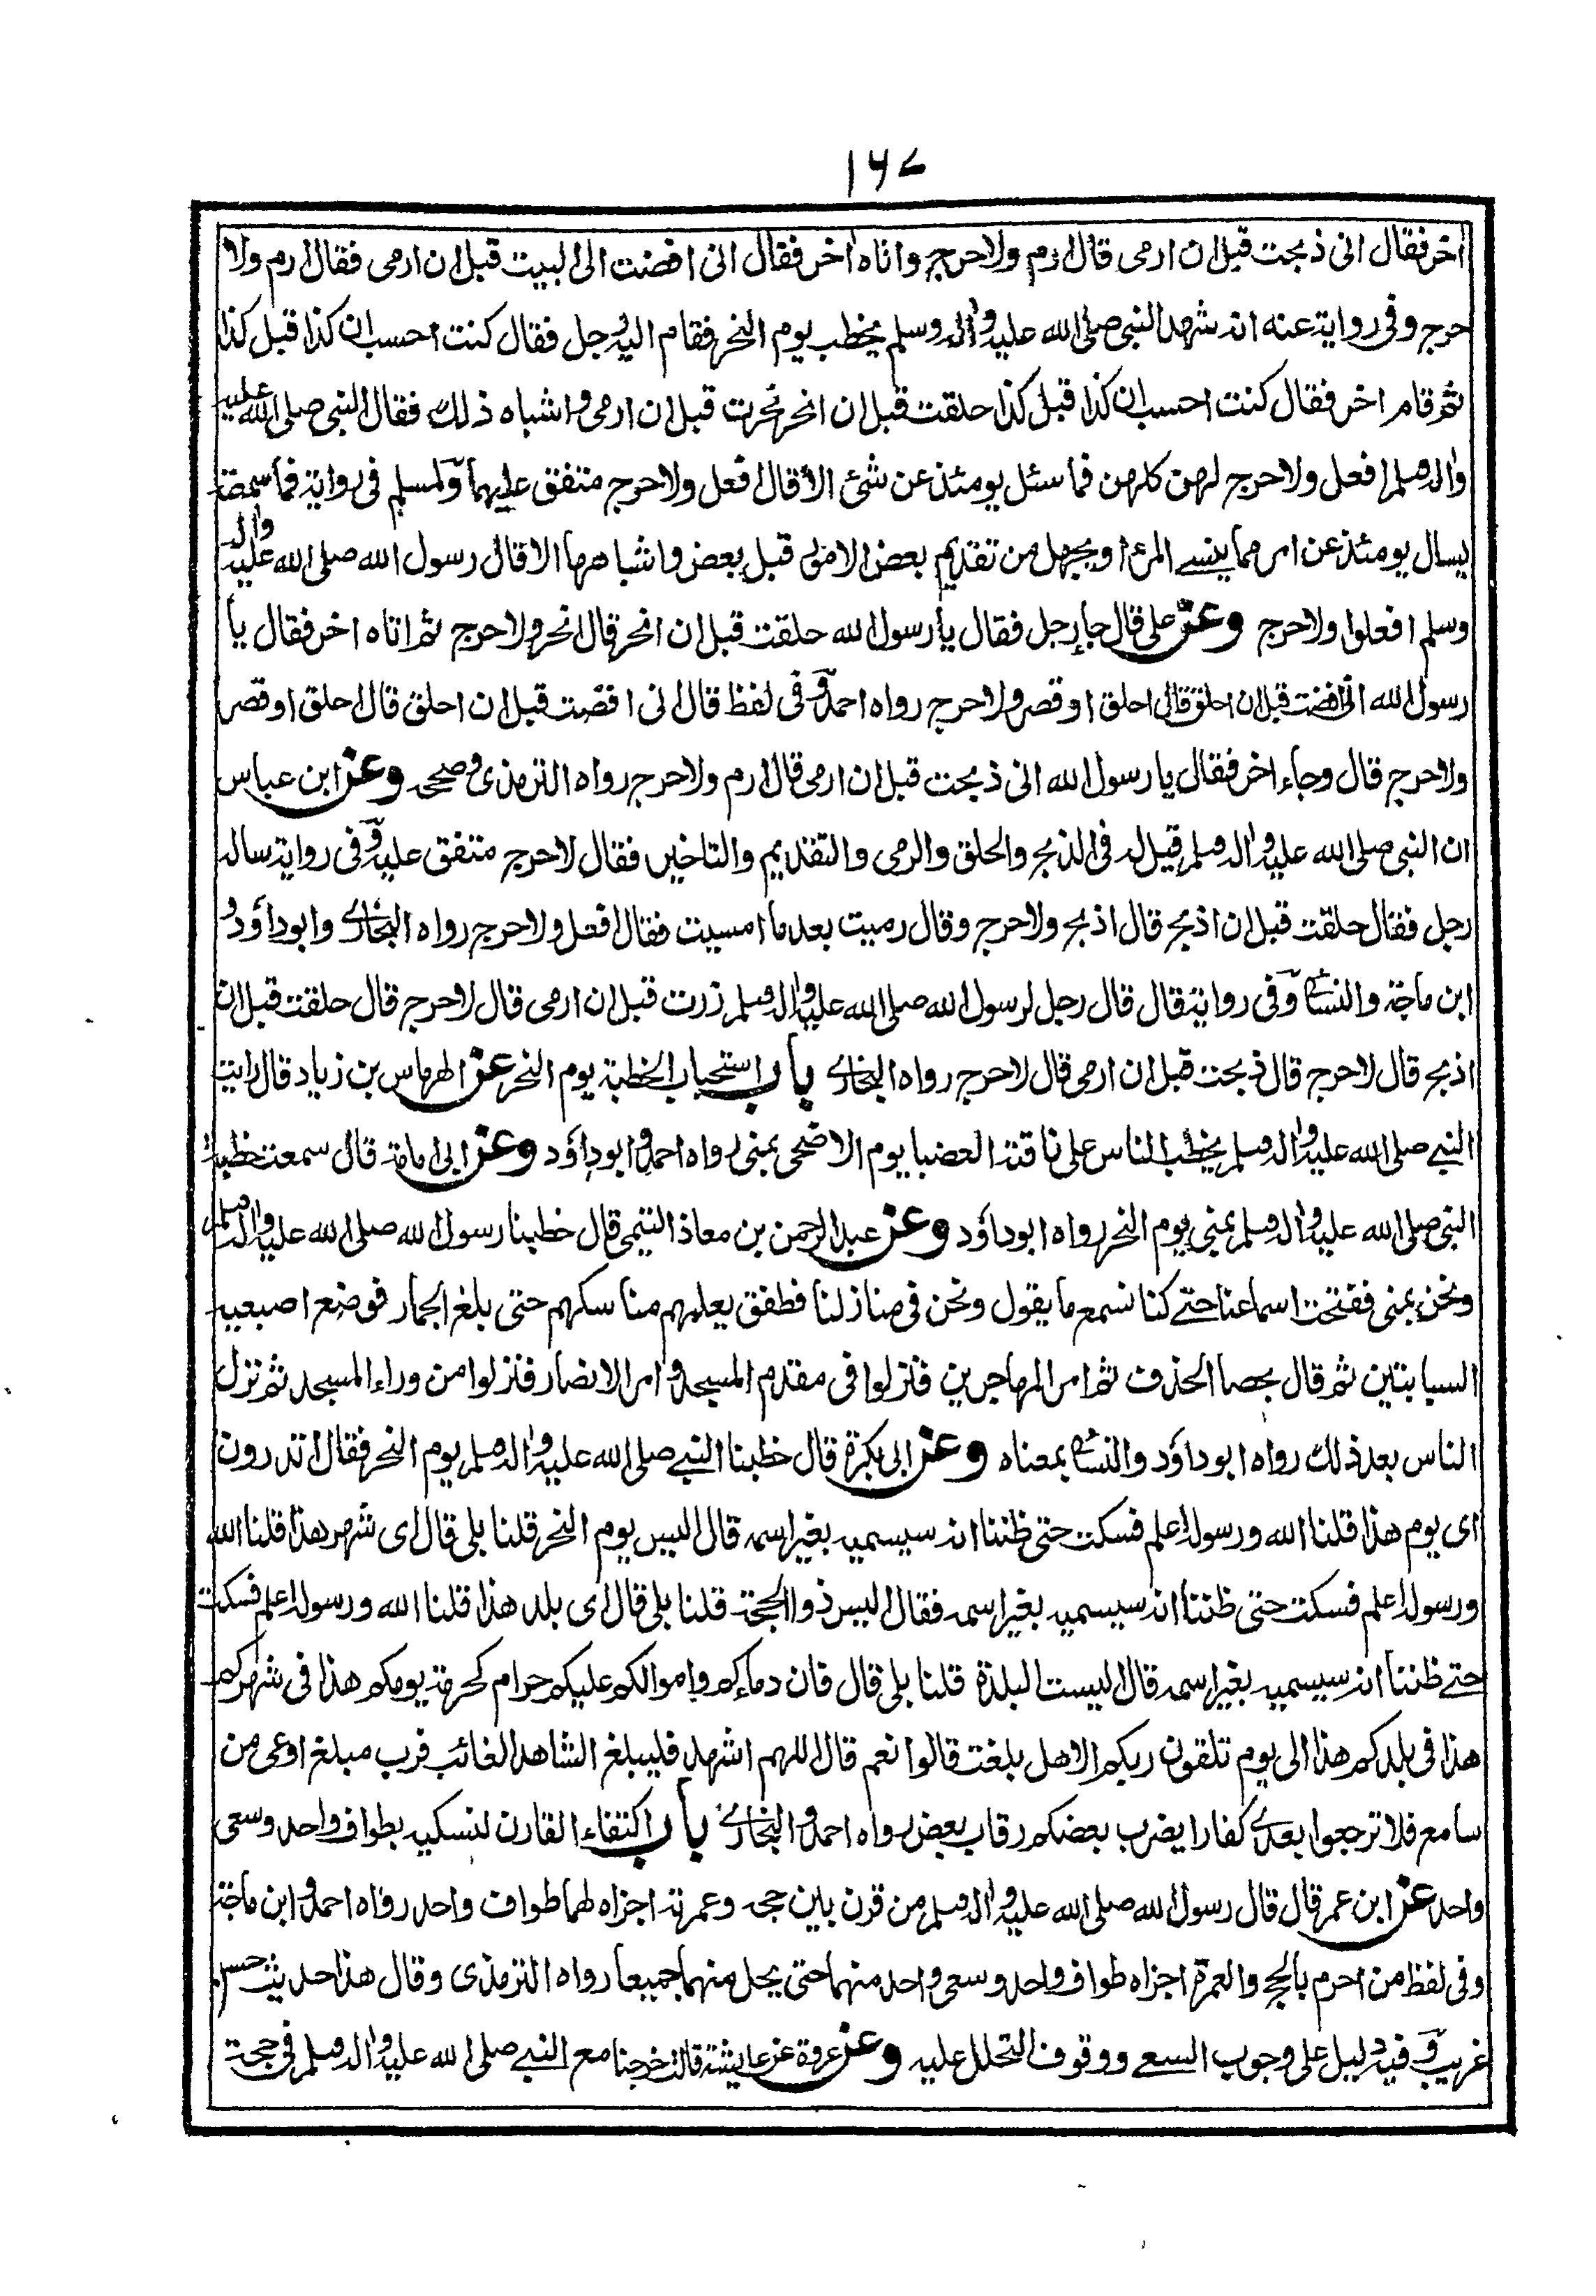 ۱۶۷
اخر فقال انى ذبحت قبل ان ارمى قال ارم ولا حرج واتاه اخر فقال انى افضت الى البيت قبل ان ارمى فقال ارم ولا
حرج وفى رواية عنه انه شهد النبى صلى الله عليه واله وسلم يخطب يوم النحر فقام اليه رجل فقال كنت احسب ان كذا قبل كذا
ثم قام اخر فقال كنت احسب ان كذا قبل كذا حلقت قبل ان انحر نحرت قبل ان ارمى واشباه ذلك فقال النبى صلى الله عليه
واله وسلم افعل ولا حرج لهن كلهن فما سئل يومئذ عن شئ الا قال افعل ولا حرج متفق عليهما ولمسلم فى رواية فما سمعته
يسال يومئذ عن امر مما ينسے المرء او يجهل من تقديم بعض الامور قبل بعض واشباهها الا قال رسول الله صلى الله عليه واله
وسلم افعلوا ولا حرج وعن على قال جاء رجل فقال يا رسول الله حلقت قبل ان انحر قال انحر ولا حرج ثم اتاه اخر فقال يا
رسول الله انى افضت قبل ان احلق قال احلق او قصر ولا حرج رواه احمد وفى لفظ قال انى افضت قبل ان احلق قال احلق او قصر
ولا حرج قال وجاء اخر فقال يا رسول الله انى ذبحت قبل ان ارمى قال ارم ولا حرج رواه الترمذى وصححه وعن ابن عباس
ان النبى صلى الله عليه واله وسلم قيل له فى الذبح والحلق والرمى والتقديم والتاخير فقال لا حرج متفق عليه وفى رواية ساله
رجل فقال حلقت قبل ان اذبح قال اذبح ولا حرج وقال رميت بعد ما امسيت فقال افعل ولا حرج رواه البخارے وابوداؤد و
ابن ماجة والنسائے وفى رواية قال قال رجل لرسول الله صلى الله عليه واله وسلم زرت قبل ان ارمى قال لا حرج قال حلقت قبل ان
اذبح قال لا حرج قال ذبحت قبل ان ارمى قال لا حرج رواه البخارے باب استحباب الخطبة يوم النحر عن الهرماس بن زياد قال رايت
النبے صلى الله عليه واله وسلم يخطب الناس على ناقته العضبا يوم الاضحى بمنى رواه احمد وابوداؤد وعن ابى امامة قال سمعت خطبة
النبى صلى الله عليه واله وسلم بمنى يوم النحر رواه ابوداؤد وعن عبد الرحمن بن معاذ التيمى قال خطبنا رسول الله صلى الله عليه واله وسلم
ونحن بمنى ففتحت اسماعنا حتے كنا نسمع ما يقول ونحن فى منازلنا فطفق يعلمهم مناسكهم حتى بلغ الجمار فوضع اصبعيه
السبابتين ثم قال بحصا الحذف ثم امر المهاجرين فنزلوا فى مقدم المسجد وامر الانصار فنزلوا من وراء المسجد ثم نزل
الناس بعد ذلك رواه ابوداؤد والنسائے بمعناه وعن ابى بكرة قال خطبنا النبے صلى الله عليه واله وسلم يوم النحر فقال اتدرون
اى يوم هذا قلنا الله ورسوله اعلم فسكت حتى ظننا انه سيسميه بغير اسمه قال اليس يوم النحر قلنا بلى قال اى شهر هذا قلنا الله
ورسوله اعلم فسكت حتى ظننا انه سيسميه بغير اسمه فقال اليس ذوا الحجة قلنا بلى قال اى بلد هذا قلنا الله ورسوله اعلم فسكت
حتے ظننا انه سيسميه بغير اسمه قال اليست البلدة قلنا بلى قال فان دماءكم واموالكم عليكم حرام كحرمة يومكم هذا فى شهركم
هذا فى بلدكم هذا الى يوم تلقون ربكم الا هل بلغت قالوا نعم قال اللهم اشهد فليبلغ الشاهد الغائب فرب مبلغ اوعى من
سامع فلا ترجعوا بعدے كفارا يضرب بعضكم رقاب بعض رواه احمد والبخارے باب اكتفاء القارن لنسكيه بطواف واحد وسعى
واحد عن ابن عمر قال قال رسول الله صلى الله عليه واله وسلم من قرن بين حجه وعمرته اجزاه لهما طواف واحد رواه احمد وابن ماجة
وفى لفظ من احرم بالحج والعمرة اجزاه طواف واحد وسعى واحد منهما حتى يحل منهما جميعا رواه الترمذى وقال هذا حديث حسن
غريب وفيه دليل على وجوب السعے ووقوف التحلل عليه وعن عروة عن عايشة قالت خرجنا مع النبے صلى الله عليه واله وسلم فى حجة